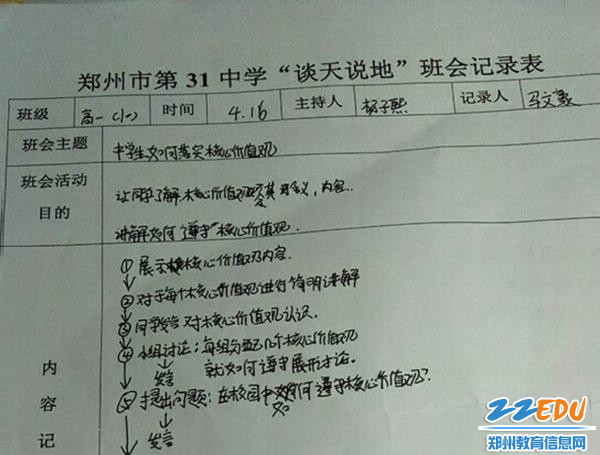 郑州市第31中学“谈天说地”班会记录表
班级 高一(一) 时间 4.16 主持人 杨子熙 记录人
班会主题 中学生如何落实核心价值观
班会活动目的 让同学了解核心价值观及其含义,内容..
讲解如何遵守“核心价值观.
①展示核心价值观内容.
②对于每个核心价值观进行简明讲解
③同学发言对核心价值观认识.
④小组讨论:每组分配几个核心价值观
就如何遵守展开讨论.
发言
⑤提出问题:在校园中如何遵守核心价值观?
发言
内容记
22EDU
郑州教育信息网